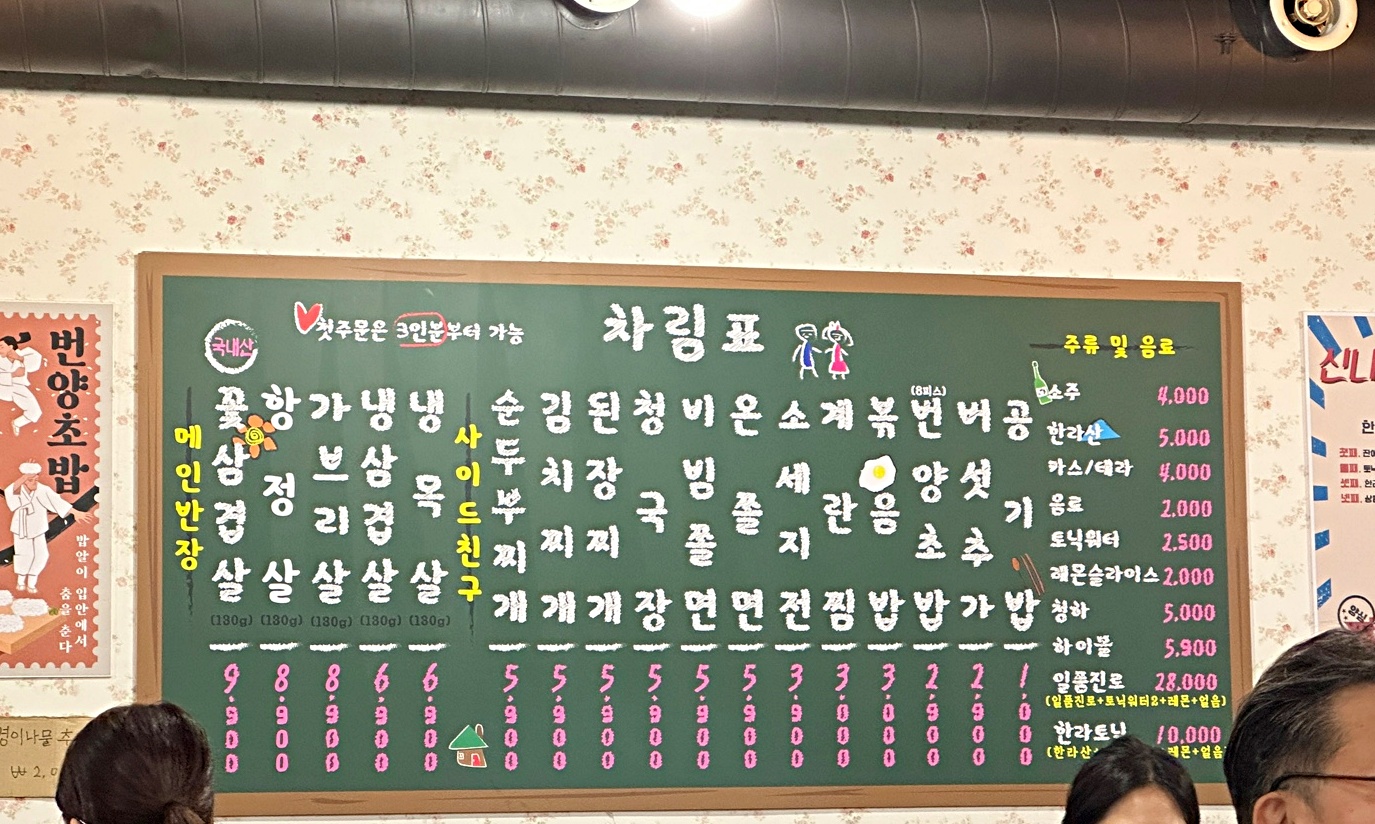 차림표
국내산
첫주문은 3인분부터 가능
메인반장
꽃삼겹살 (180g) 9,900
항정살 (180g) 8,900
가브리살 (180g) 8,900
냉삼겹살 (180g) 6,900
냉목살 (180g) 6,900
사이드친구
순두부찌개 5,900
김치찌개 5,900
된장찌개 5,900
청국장 5,900
비빔쫄면 5,900
온쫄면 5,900
소세지전 3,900
계란찜 3,000
볶음밥 3,000
(8피스)
번양초밥 2,900
버섯추가 2,900
공기밥 1,000
주류 및 음료
소주 4,000
한라산 5,000
카스/테라 4,000
음료 2,000
토닉워터 2,500
레몬슬라이스 2,000
청하 5,000
하이볼 5,900
일품진로 28,000
(일품진로+토닉워터2+레몬+얼음)
한라토닉 10,000
(한라산
레몬+얼음
번양초밥
밥알이 입안에서
춤을 춘다
신나
한
첫째.
둘째.
셋째.
넷째.